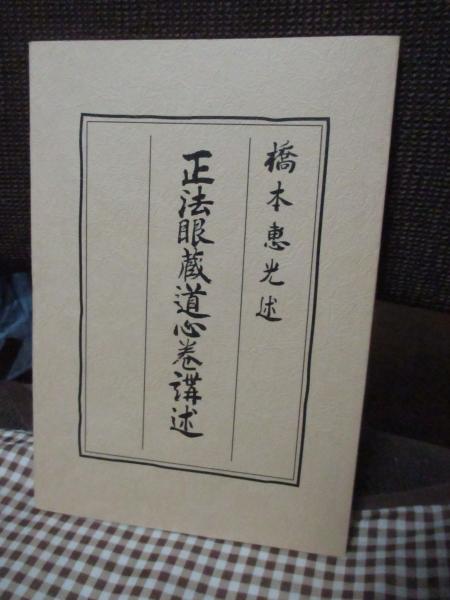 橋本惠光述
正法眼蔵道心巻講述